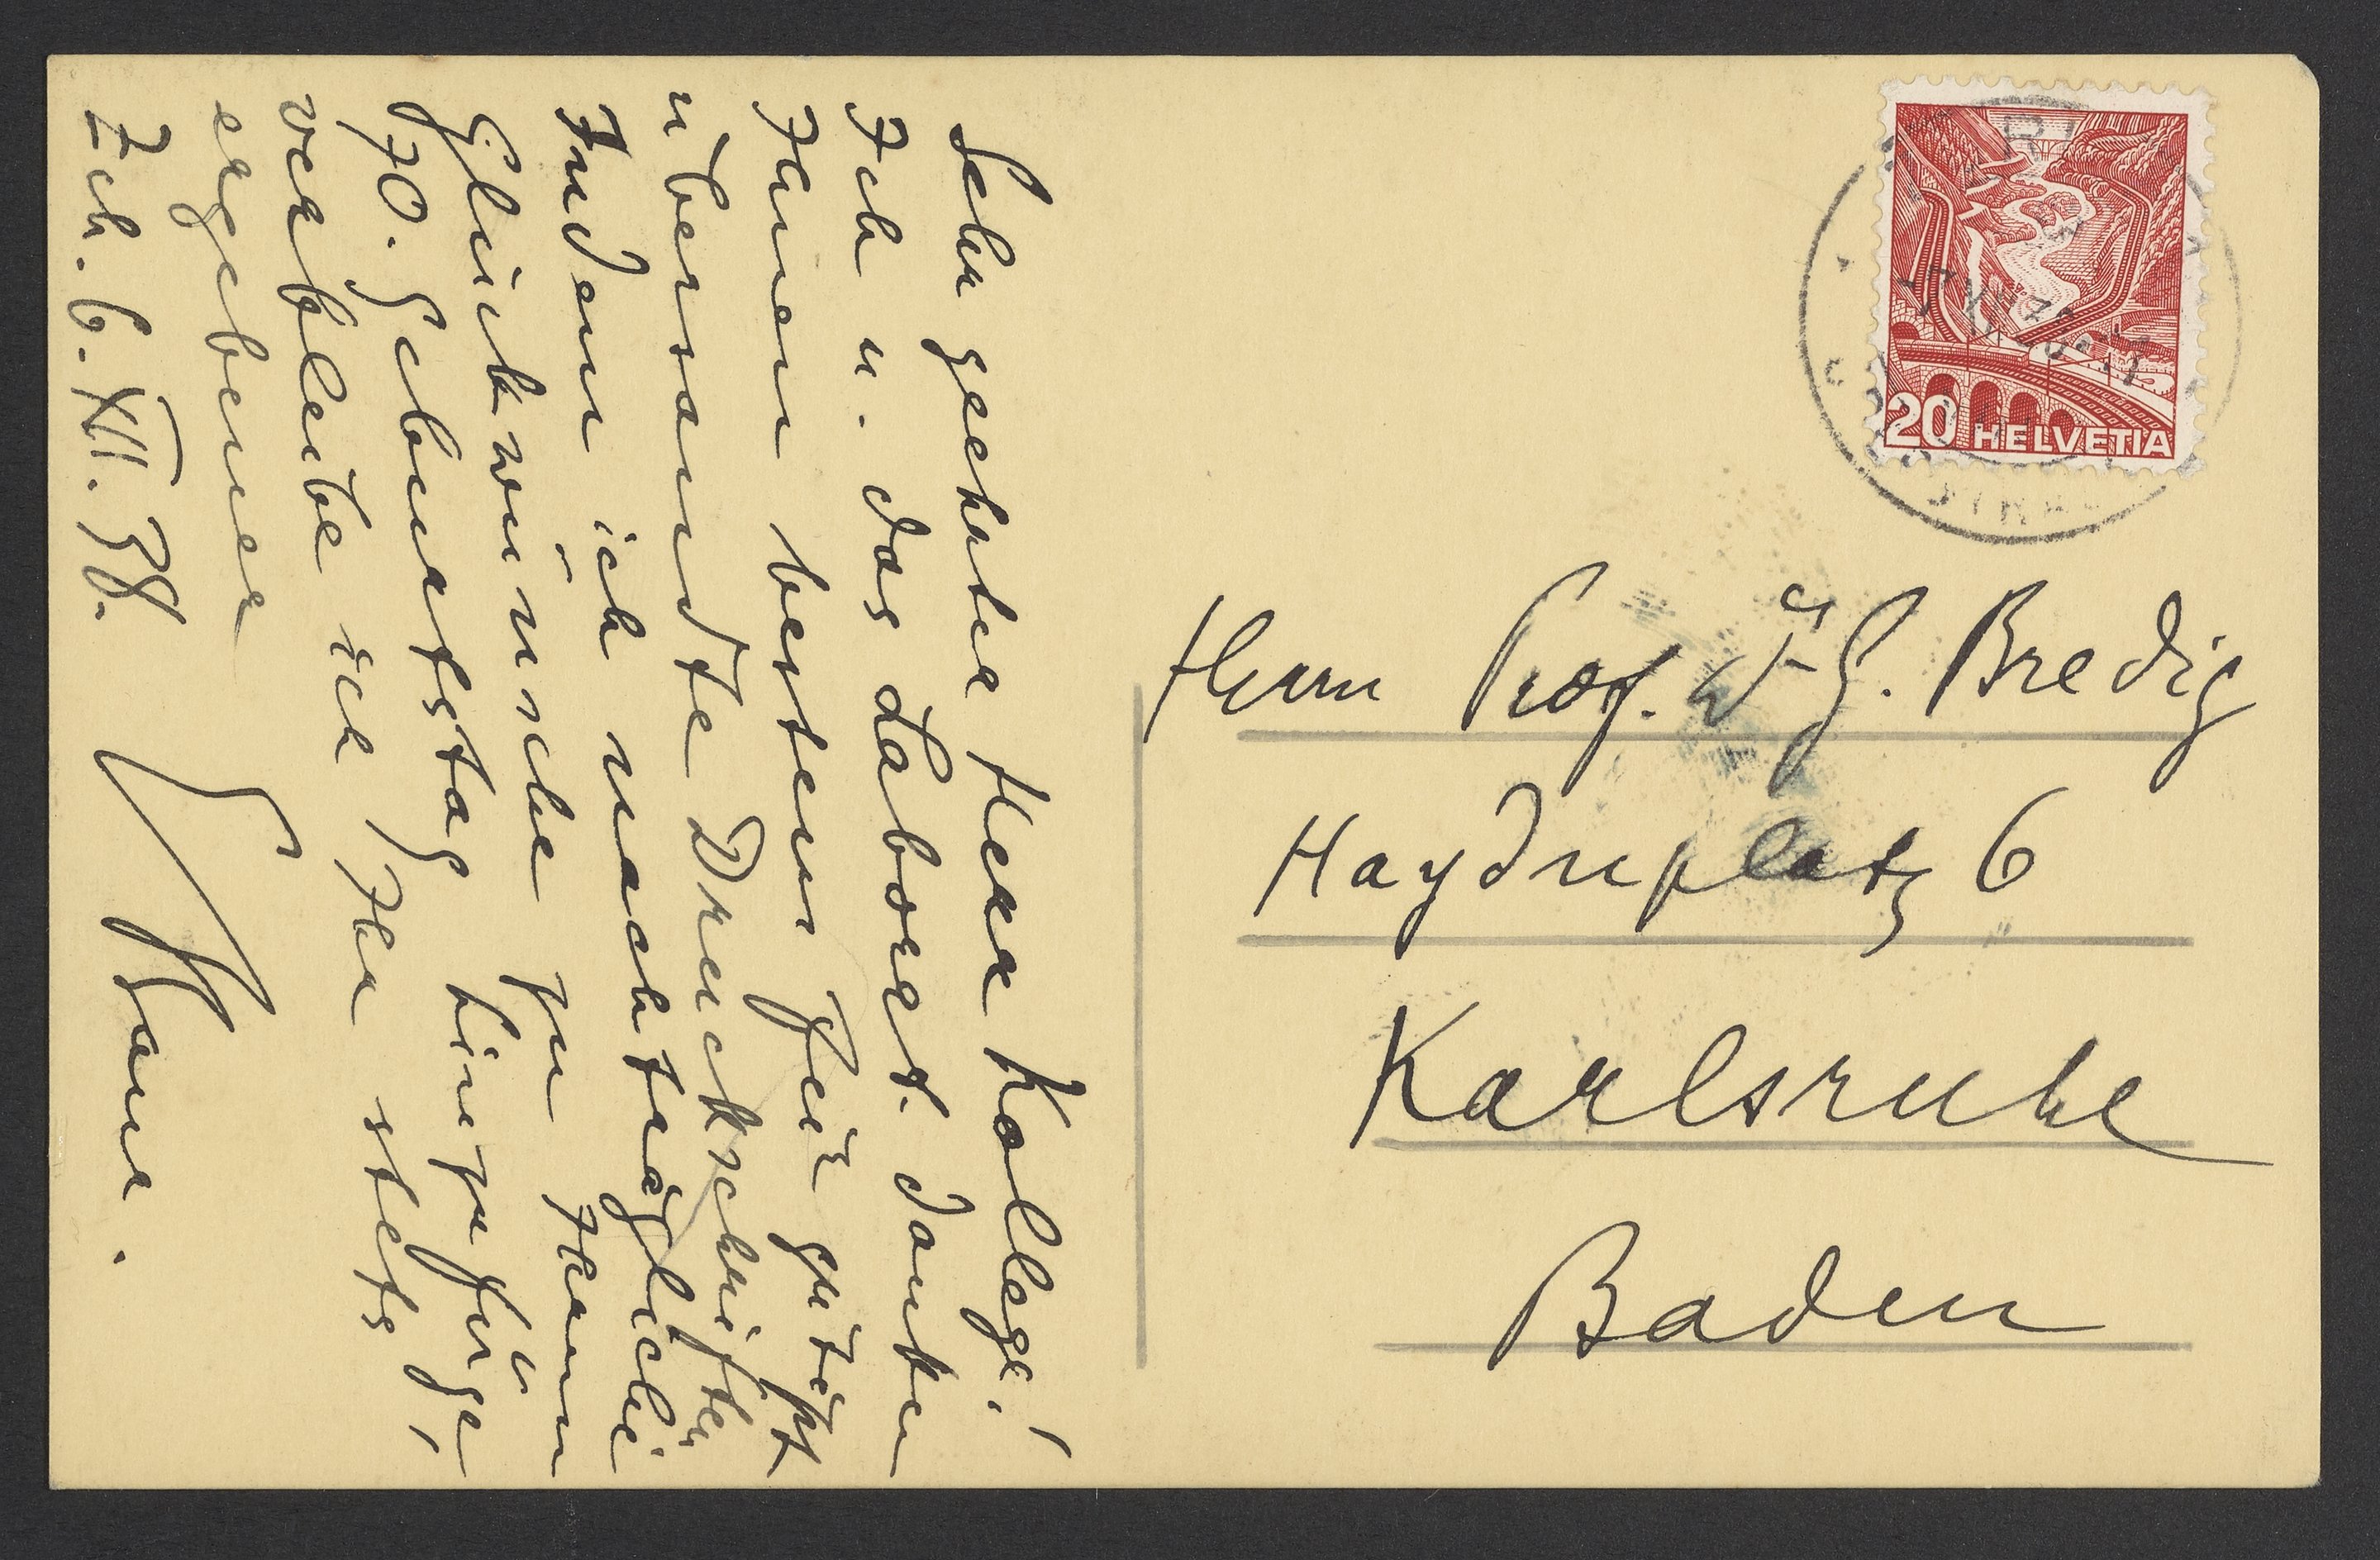 Sehr geehrter Herr Kollege!
Ich u. das Laborat. danken
Ihnen bestens für gütigst
übersandte Druckschriften
Indem ich nachträgliche
Glückwünsche zu Ihrem
70. Geburtstag hinzufüge,
verbleibe ich Ihr stets
ergebener
Zch. 6. XII. 38.
20 HELVETIA
Herrn Prof. Dr G. Bredig
Haydnplatz 6
Karlsruhe
Baden